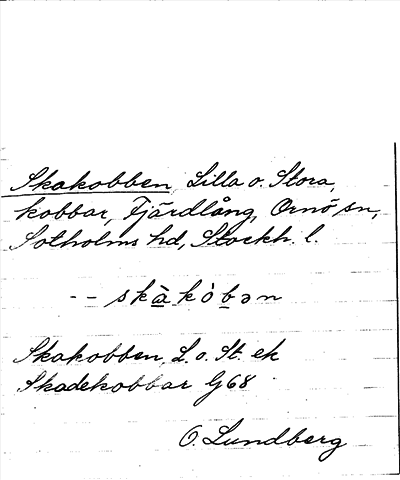 Skakobben, Lilla o. Stora,
kobbar, Fjärdlång, Ornö sn,
Sotholms hd, Stockh. l.
-- skàkòbən
Skakobben, L. o. St. ek
Skadekobbar G68
O. Lundberg